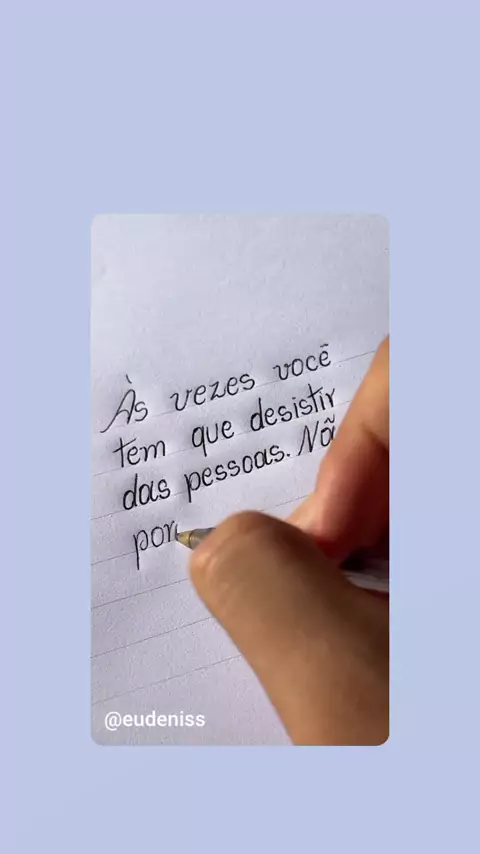 Às vezes você
tem que desistir
das pessoas. Nã
por
@eudeniss